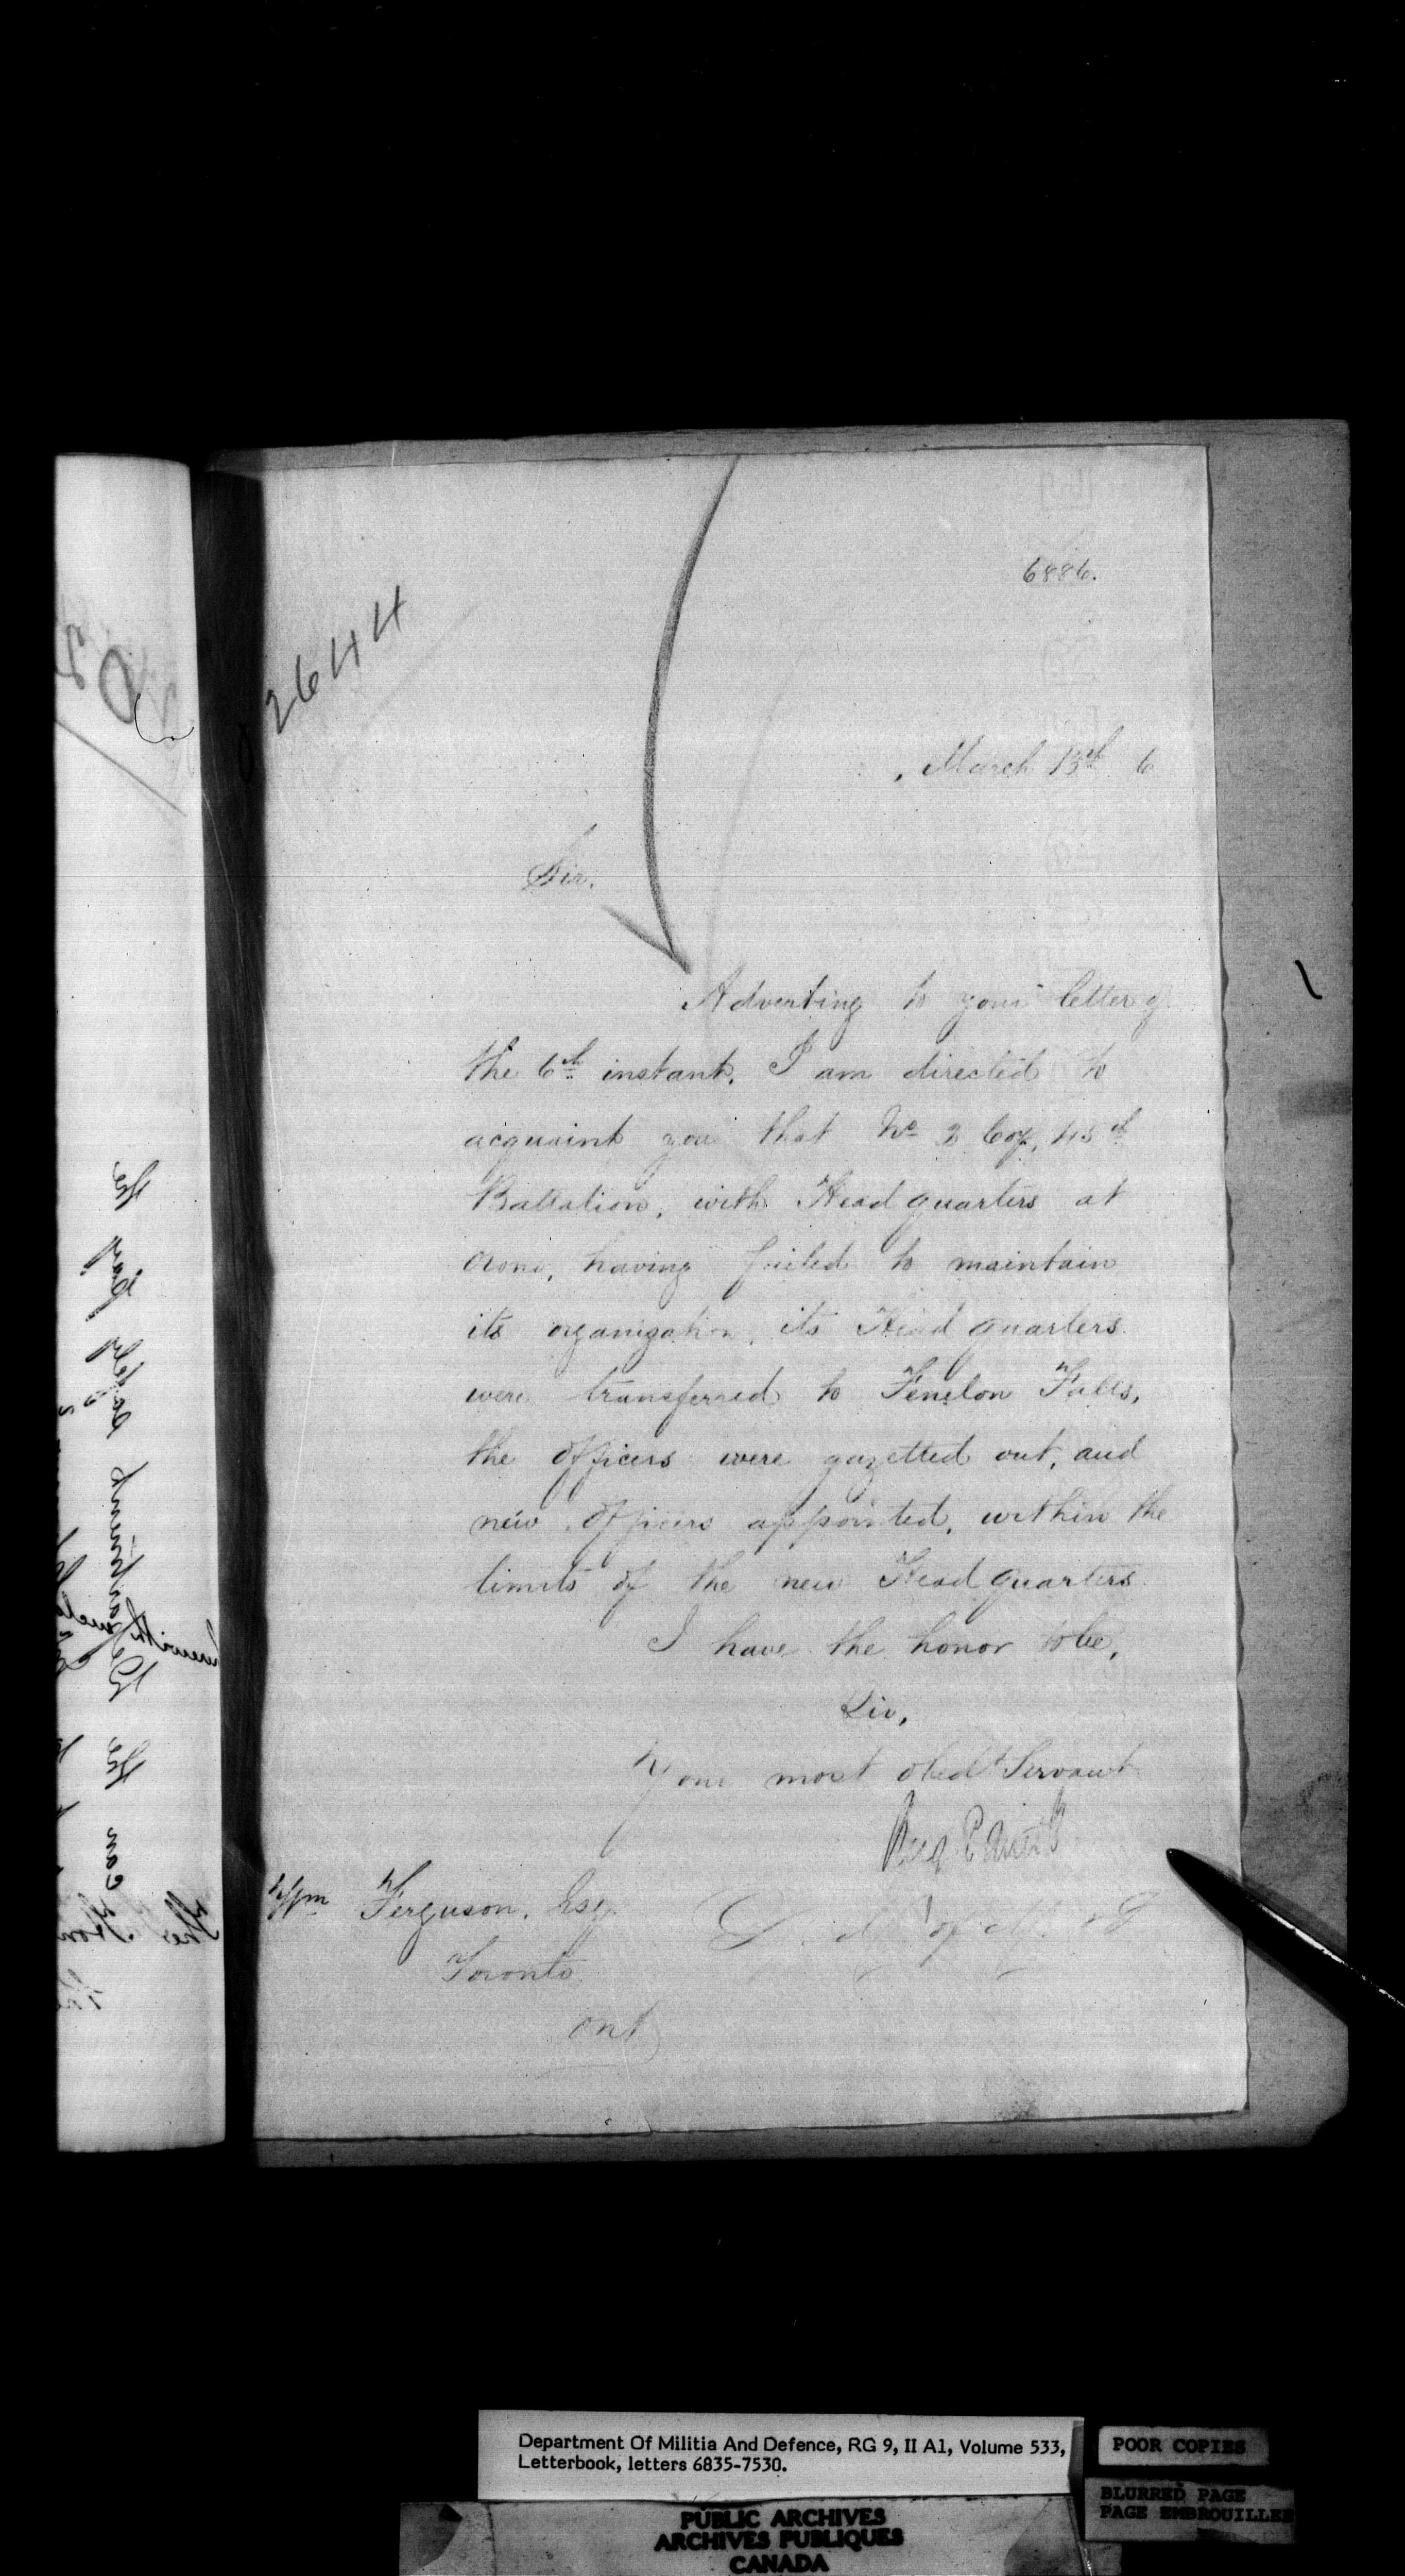 6886.
2644
March 13th 6
Sir,
Adverting to your letter of
the 6th instant, I am directed to
acquaint you that No 3 Coy, 45th
Battalion, with Head quarters at
Orono, having failed to maintain
its organization, its Head quarters
were transferred to Fenelon Falls,
the officers were gazetted out, and
new officers appointed, within the
limits of the new Head quarters.
I have the honor to be,
Sir,
Your most obedt Servant
D. M. of M. & D
Wm Ferguson, Esq.
Toronto
Ont
Department Of Militia And Defence, RG 9, II A1, Volume 533,
Letterbook, letters 6835-7530.
POOR COPIES
BLURRED PAGE
PAGE EMBROUILLEE
PUBLIC ARCHIVES
ARCHIVES PUBLIQUES
CANADA